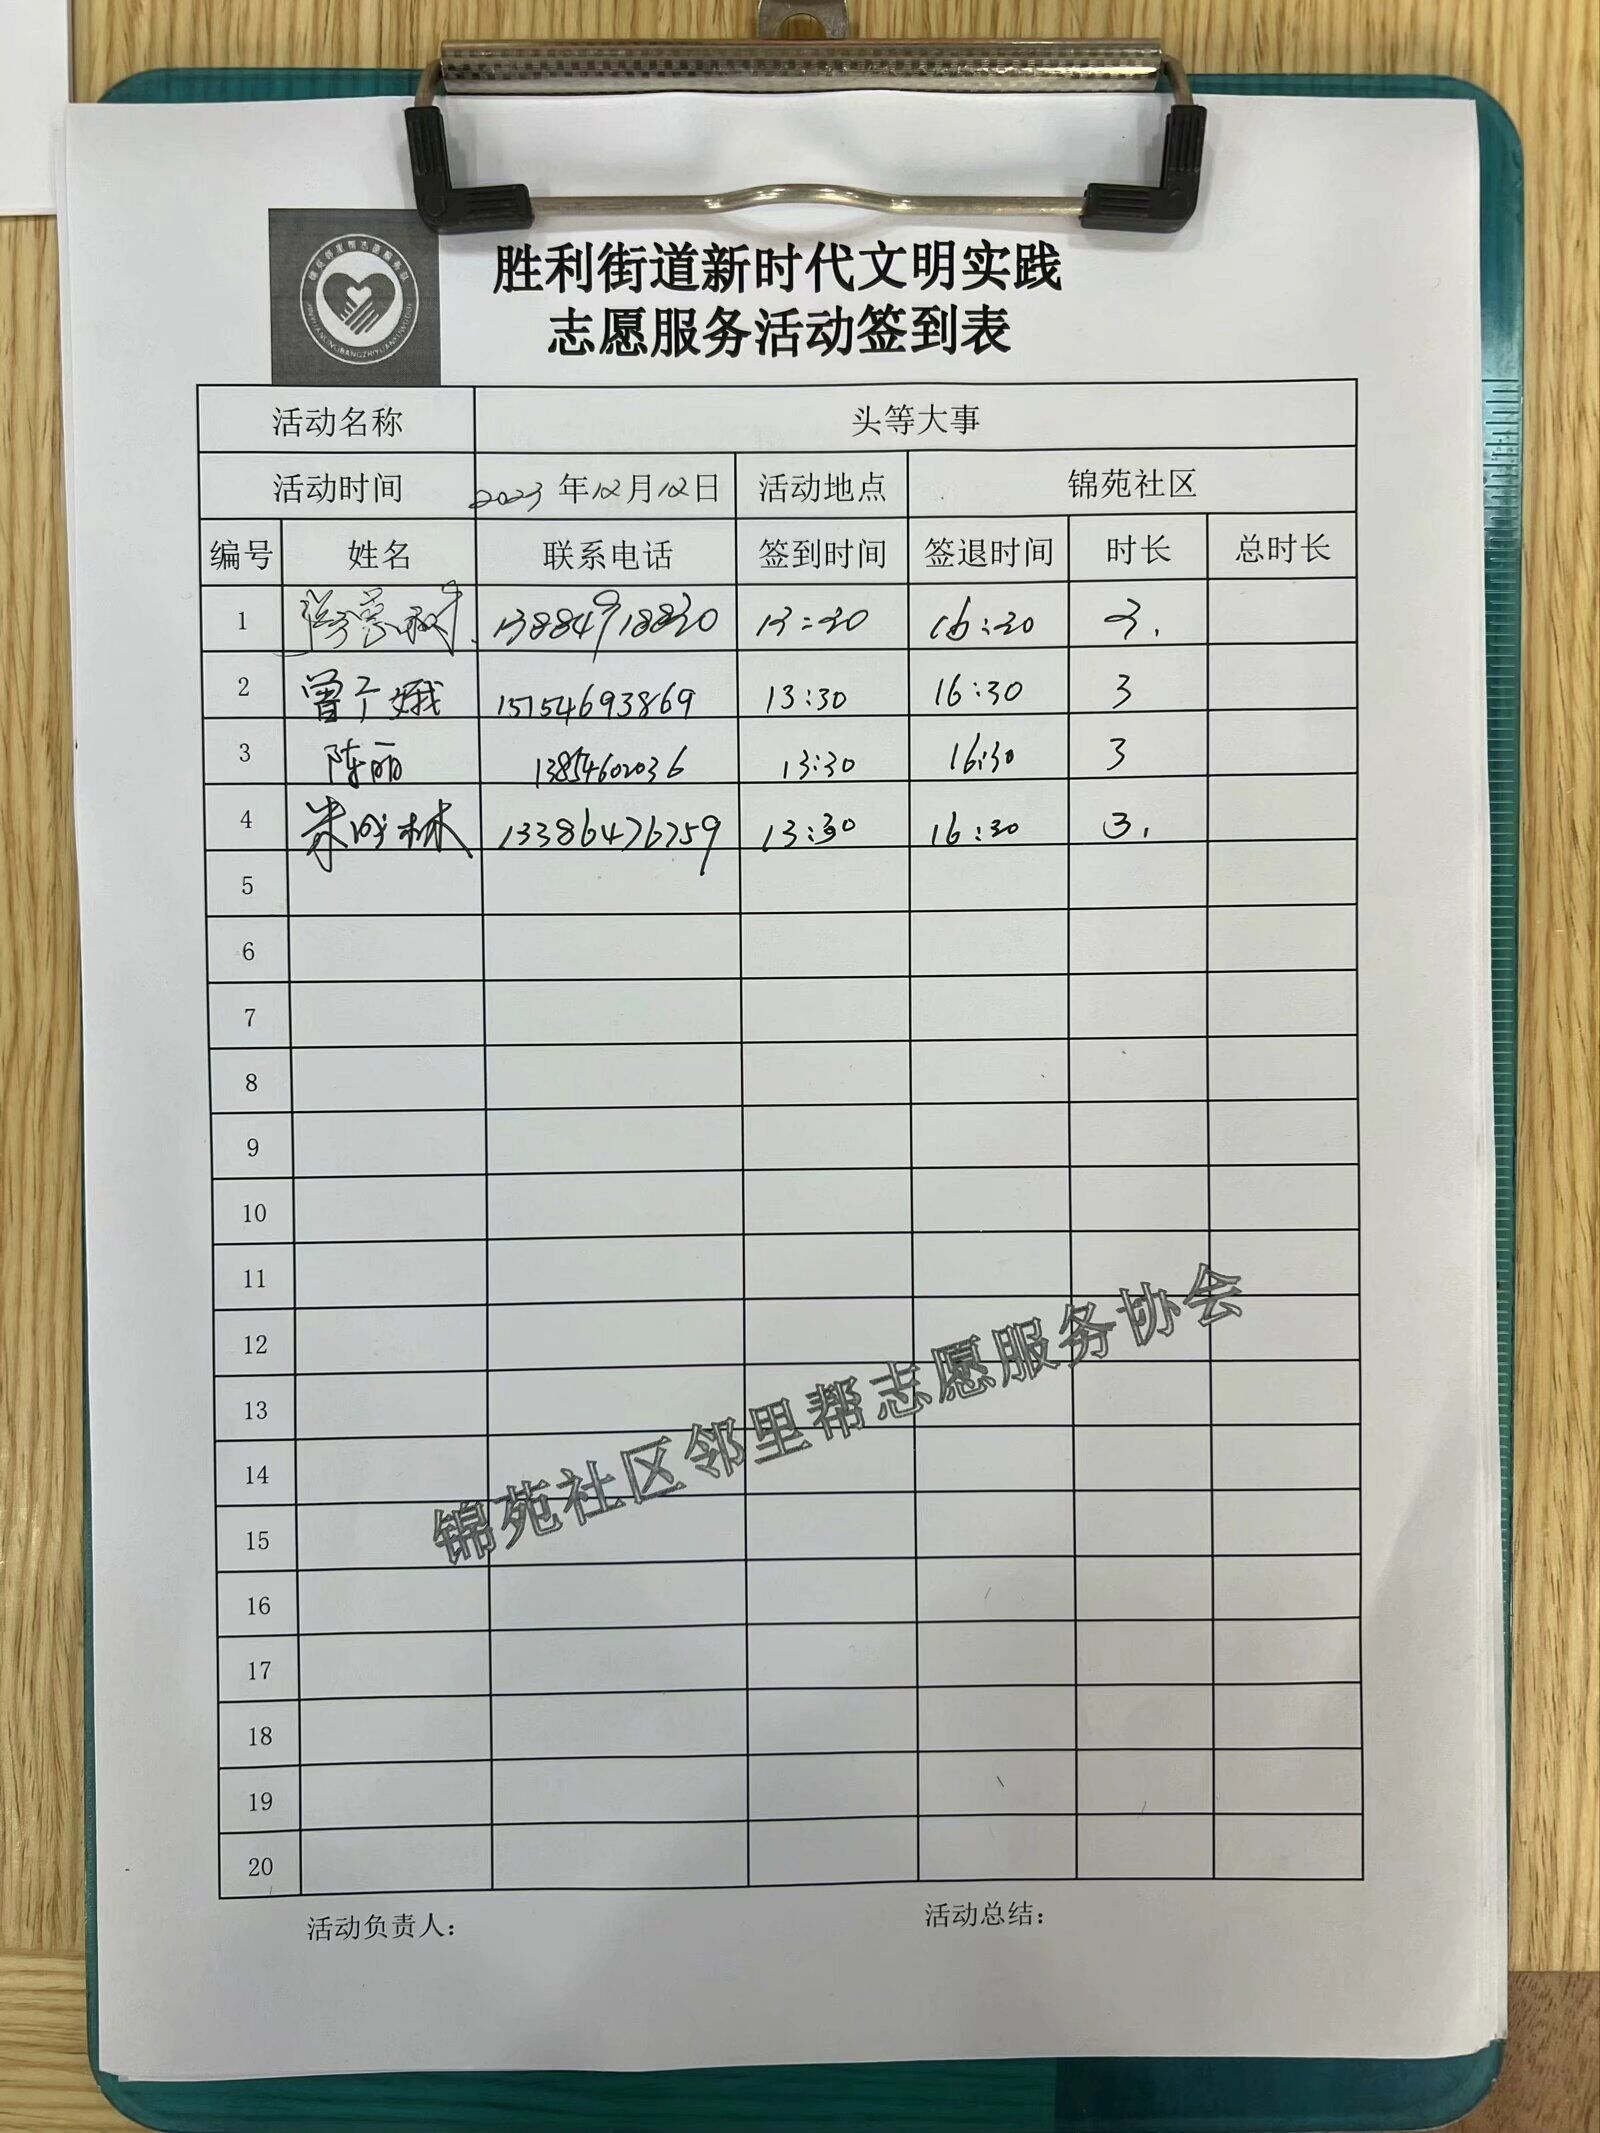 胜利街道新时代文明实践
志愿服务活动签到表
活动名称 头等大事
活动时间 2023年12月12日 活动地点 锦苑社区
编号 姓名 联系电话 签到时间 签退时间 时长 总时长
1 13884918830 13:30 16:30 3.
2 15154693869 13:30 16:30 3
3 陈丽 13854602036 13:30 16:30 3
4 13386476759 13:30 16:30 3.
5
6
7
8
9
10
11
12
13
14
15
16
17
18
19
20
锦苑社区邻里帮志愿服务协会
活动负责人：活动总结：